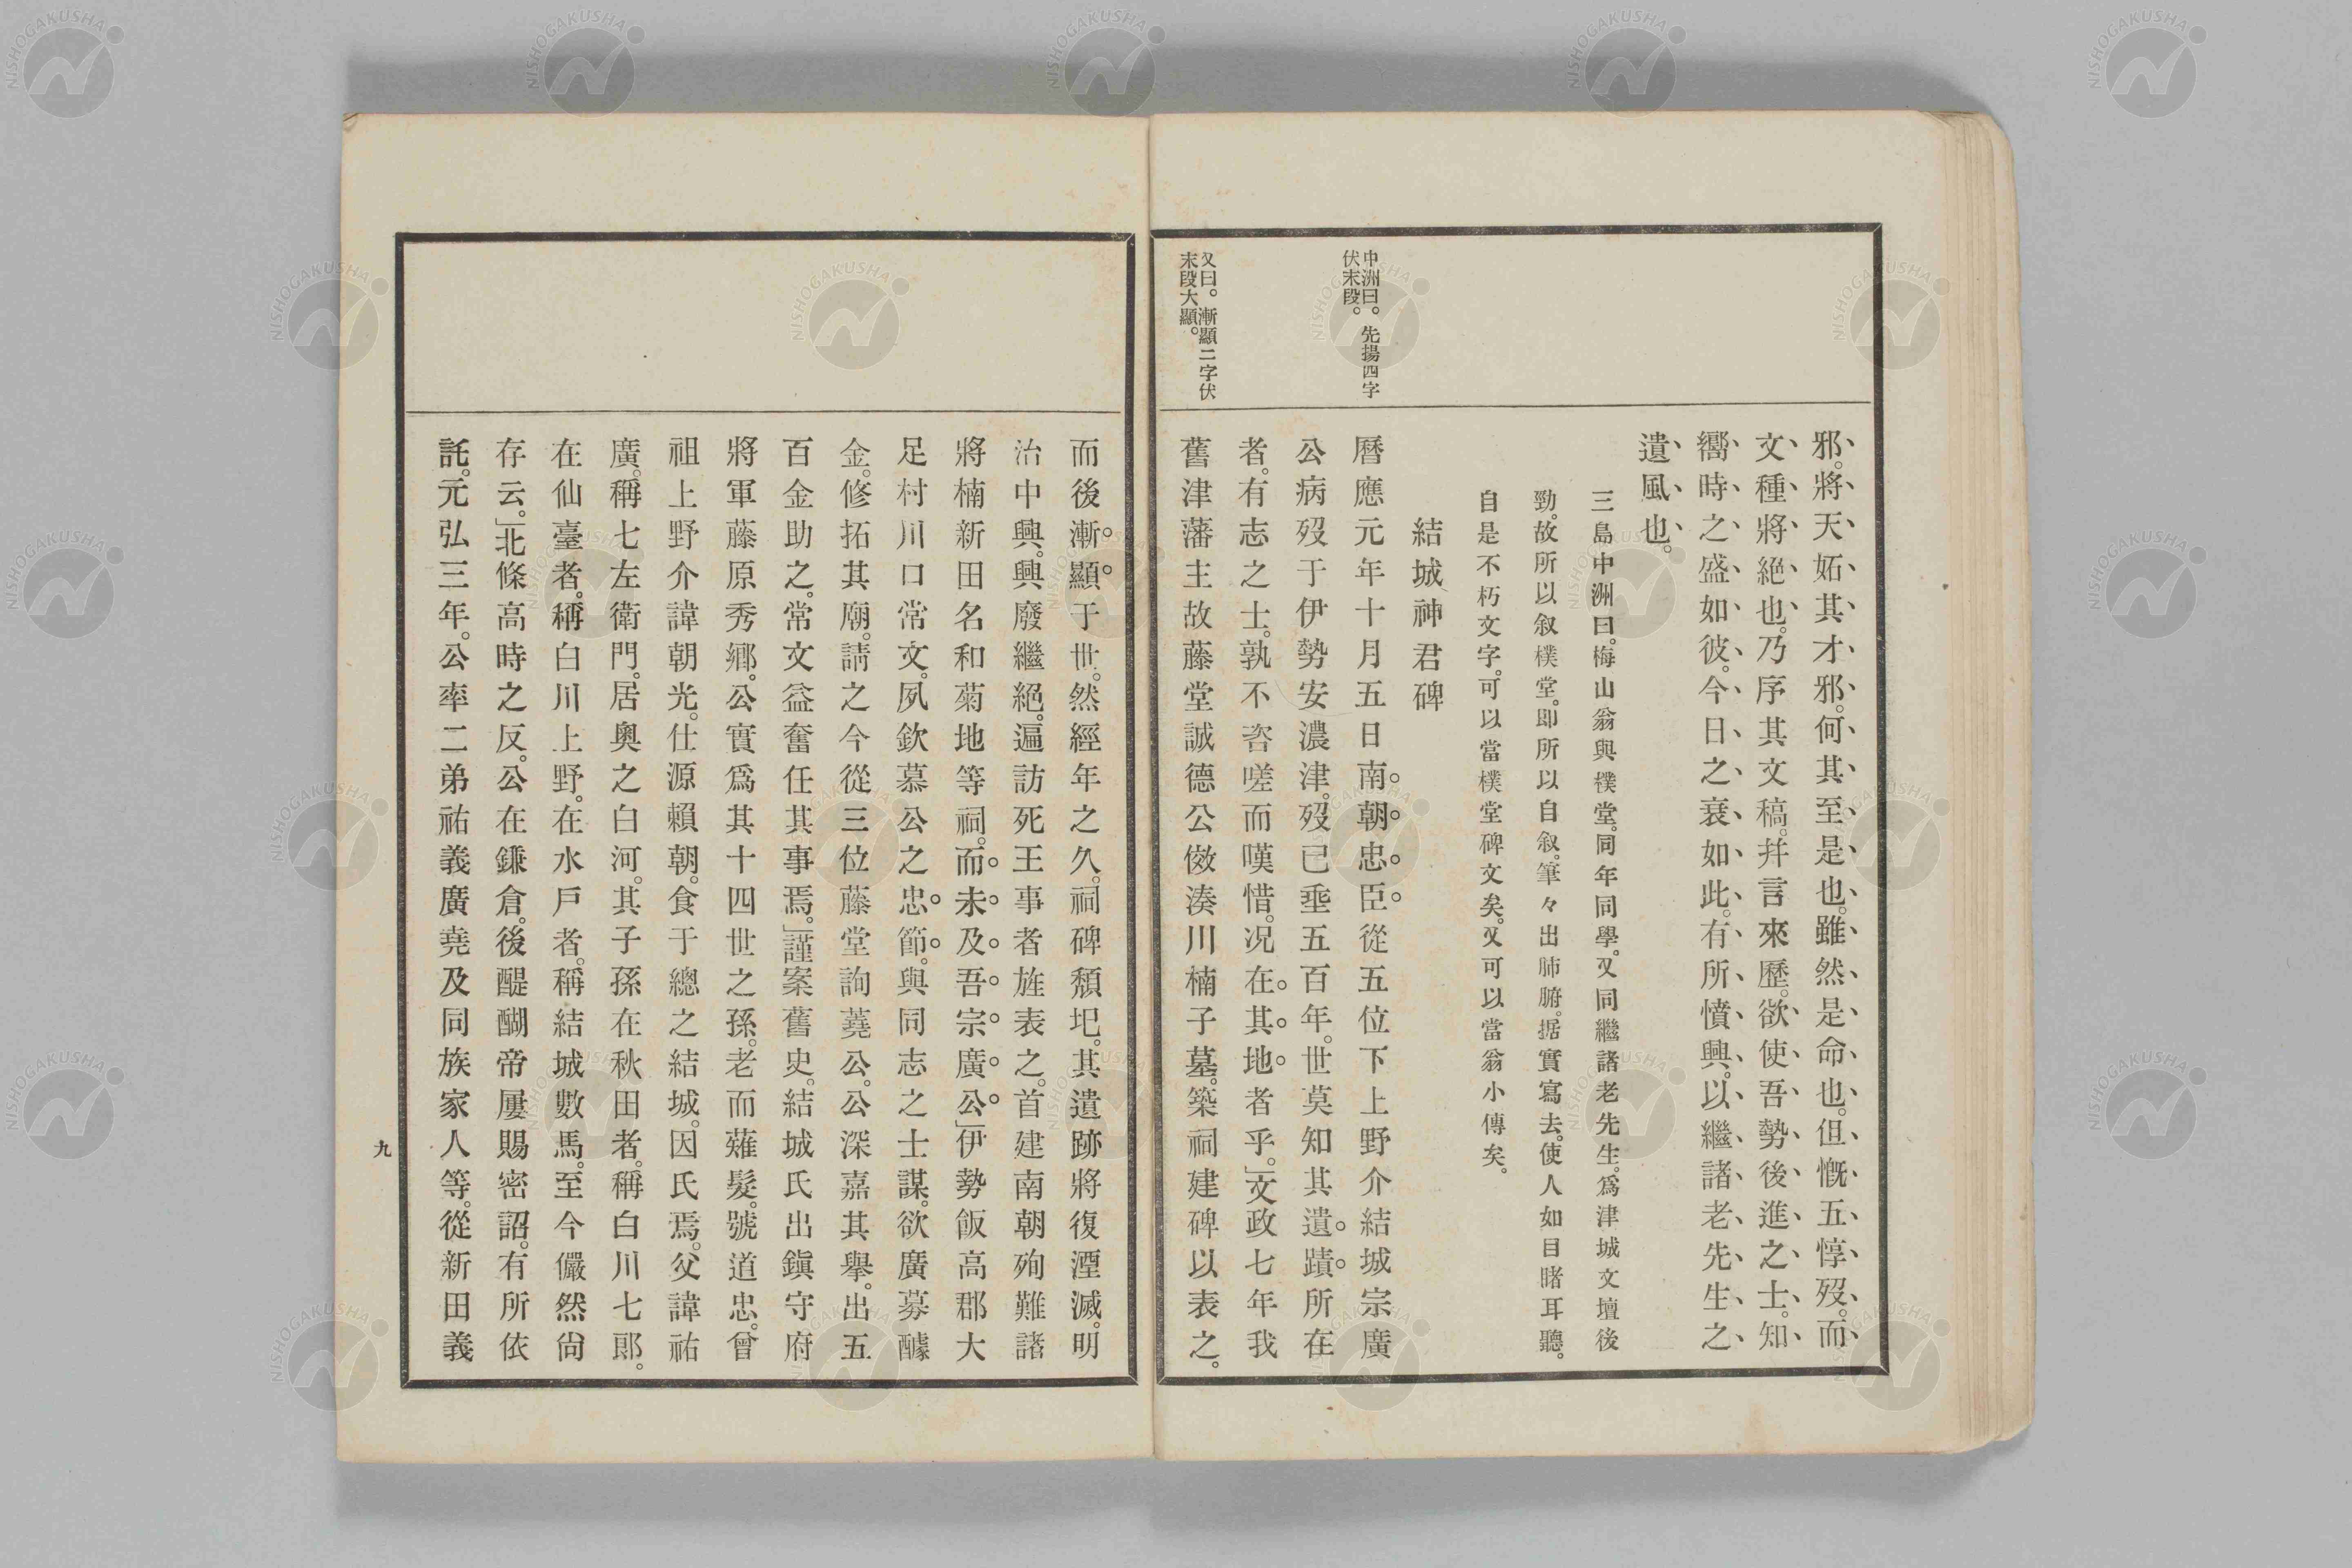 邪。將天妬其才邪。何其至是也。雖然是命也。但慨五惇歿。而
文種將絕也。乃序其文稿。幷言來歷。欲使吾勢後進之士。知
嚮時之盛如彼。今日之衰如此。有所憤興。以繼諸老先生之
遺風也。
三島中洲曰。梅山翁與樸堂。同年同學。又同繼諸老先生。爲津城文壇後
勁。故所以叙樸堂。卽所以自叙。筆々出肺腑。据實寫去。使人如目睹耳聽。
自是不朽文字。可以當樸堂碑文矣。又可以當翁小傳矣。
結城神君碑
中洲曰。先揚四字
伏末段。
曆應元年十月五日南朝忠臣。從五位下上野介結城宗廣
公病歿于伊勢安濃津。歿已垂五百年。世莫知其遺蹟所在
者。有志之士。孰不咨嗟而嘆惜。况在其地者乎。」文政七年我
又曰。漸顯二字伏
末段大顯。
舊津藩主故藤堂誠德公倣湊川楠子墓。築祠建碑以表之。
而後漸顯于世。然經年之久。祠碑頽圯。其遺跡將復湮滅。明
治中興。興廢繼絕。遍訪死王事者旌表之。首建南朝殉難諸
將楠新田名和菊地等祠。而未及吾宗廣公。」伊勢飯高郡大
足村川口常文。夙欽慕公之忠節。與同志之士謀。欲廣募醵
金。修拓其廟。請之今從三位藤堂詢蕘公。公深嘉其擧。出五
百金助之。常文益奮任其事焉。」謹案舊史。結城氏出鎭守府
將軍藤原秀鄕。公實爲其十四世之孫。老而薙髮。號道忠。曾
祖上野介諱朝光。仕源賴朝。食于總之結城。因氏焉。父諱祐
廣。稱七左衛門。居奧之白河。其子孫在秋田者。稱白川七郞。
在仙臺者。稱白川上野。在水戶者。稱結城數馬。至今儼然尙
存云。」北條高時之反。公在鎌倉。後醍醐帝屢賜密詔。有所依
託。元弘三年。公率二弟祐義廣堯及同族家人等。從新田義
九
NISHOGAKUSHA